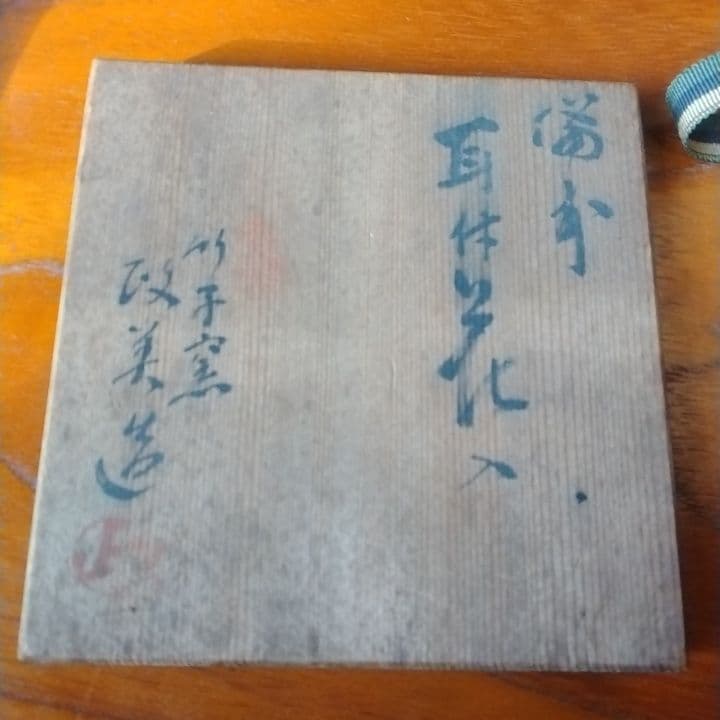 備前
耳付花入
窯
政美造